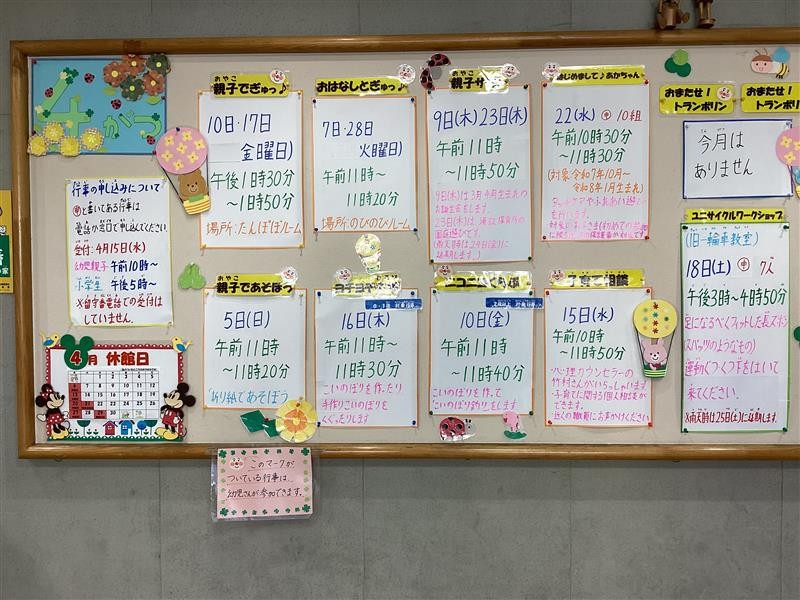 4がつ
行事の申し込みについて
申と書いてある行事は
電話か窓口で申し込んでください。
受付:4月15日(水)
幼児親子 午前10時~
小学生 午後5時~
※留守番電話での受付は
していません。
4月 休館日
おやこ
親子でぎゅっ♪
10日・17日
金曜日)
午後1時30分
~1時50分
場所:たんぽぽルーム
おはなしとぎゅっ♪
7日・28日
火曜日)
午前11時~
11時20分
場所:のびのびルーム
おやこ
親子サ
9日(木)23日(木)
午前11時
~11時50分
9日(木)は3月4月生まれの
お誕生会をします。
はじめまして♪あかちゃん
22(水) 申 10組
午前10時30分
~11時30分
(対象:令和7年10月~
令和8年1月生まれ)
おまたせ!
トランポリン
おまたせ!
トランポリン
今月は
ありません
ユニサイクルワークショップ
(旧一輪車教室)
18日(土) 申 7人
午後3時~4時50分
足になるべくフィットした長ズボン
(スパッツのようなもの)
運動ぐつ、くつ下をはいて
来てください。
※雨天時は25日(土)に延期します。
おやこ
親子であそぼう
5日(日)
午前11時
~11時20分
折り紙であそぼう
16日(木)
午前11時~
11時30分
こいのぼりを作ったり
手作りこいのぼりを
くぐったりします
10日(金)
午前11時
~11時40分
こいのぼりを作って
こいのぼり釣りをします
子育て相談
15日(水)
午前10時
~11時50分
心理カウンセラーの
竹村さんがいらっしゃいます
子育てに関する個人相談が
できます。
近くの職員にお声かけください
このマークが
ついている行事は、
幼児さんが参加できます。